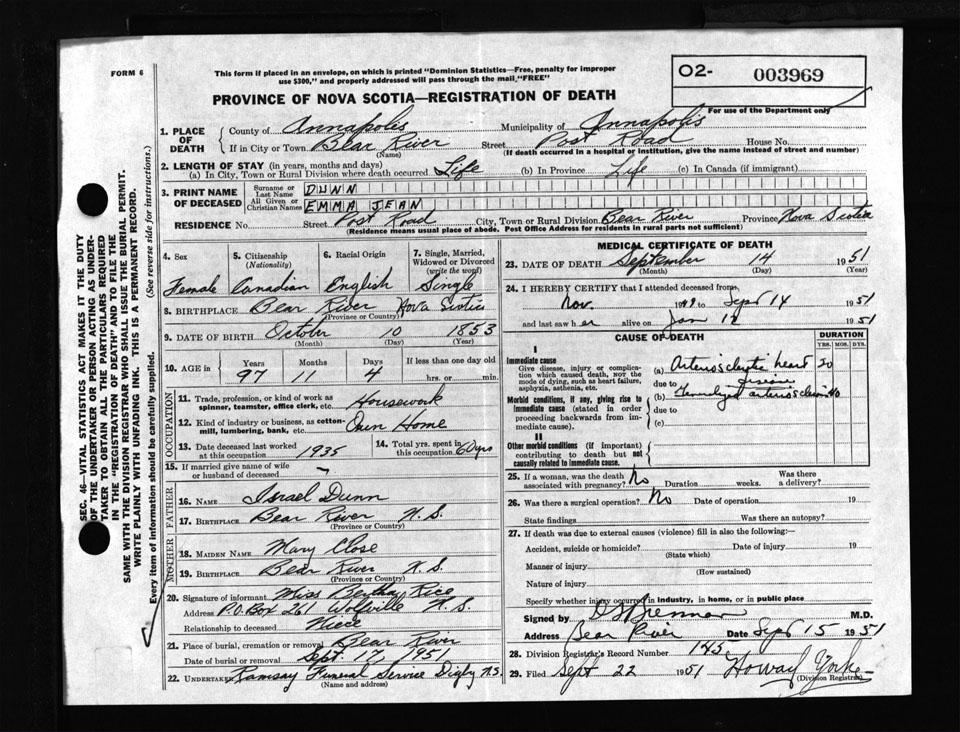 FORM 6
This form if placed in an envelope, on which is printed "Dominion Statistics—Free, penalty for improper
use $300," and properly addressed will pass through the mail, "FREE"
O2- 003969
For use of the Department only
PROVINCE OF NOVA SCOTIA—REGISTRATION OF DEATH
1. PLACE OF DEATH
County of Annapolis Municipality of Annapolis
If in City or Town Bear River Street Post Road House No.
(Name) (If death occurred in a hospital or institution, give the name instead of street and number)
2. LENGTH OF STAY (in years, months and days)
(a) In City, Town or Rural Division where death occurred Life (b) In Province Life (c) In Canada (if immigrant)
3. PRINT NAME OF DECEASED
Surname or Last Name DUNN
All Given or Christian Names EMMA JEAN
RESIDENCE No. Street Post Road City, Town or Rural Division Bear River Province Nova Scotia
(Residence means usual place of abode. Post Office Address for residents in rural parts not sufficient)
4. Sex 5. Citizenship (Nationality) 6. Racial Origin 7. Single, Married, Widowed or Divorced (write the word)
Female Canadian English Single
8. BIRTHPLACE Bear River Nova Scotia
(Province or Country)
9. DATE OF BIRTH October 10 1853
(Month) (Day) (Year)
10. AGE in Years Months Days If less than one day old
97 11 4 hrs. or min.
OCCUPATION
11. Trade, profession, or kind of work as spinner, teamster, office clerk, etc. Housework
12. Kind of industry or business, as cotton-mill, lumbering, bank, etc. Own Home
13. Date deceased last worked at this occupation 1935
14. Total yrs. spent in this occupation 60 yrs
15. If married give name of wife or husband of deceased –
FATHER
16. NAME Israel Dunn
17. BIRTHPLACE Bear River N.S.
(Province or Country)
MOTHER
18. MAIDEN NAME Mary Close
19. BIRTHPLACE Bear River N.S.
(Province or Country)
20. Signature of informant Miss Bertha Rice
Address P.O. Box 261 Wolfville N.S.
Relationship to deceased Niece
21. Place of burial, cremation or removal Bear River
Date of burial or removal Sept. 17, 1951
22. UNDERTAKER Ramsay Funeral Service Digby N.S.
(Name and address)
MEDICAL CERTIFICATE OF DEATH
23. DATE OF DEATH September 14 1951
(Month) (Day) (Year)
24. I HEREBY CERTIFY that I attended deceased from
Nov. 1949 to Sept 14 1951
and last saw her alive on Jan 12 1951
CAUSE OF DEATH DURATION
YRS. MOS. DYS.
I
Immediate cause
Give disease, injury or complication which caused death, NOT the mode of dying, such as heart failure, asphyxia, asthenia, etc.
(a) Arteriosclerotic heart disease 20
due to
Morbid conditions, if any, giving rise to immediate cause (stated in order proceeding backwards from immediate cause).
(b) arteriosclerosis 40
due to
(c)
II
Other morbid conditions (if important) contributing to death but not causally related to immediate cause.
25. If a woman, was the death associated with pregnancy? No Duration weeks. Was there a delivery?
26. Was there a surgical operation? No Date of operation 19
State findings Was there an autopsy?
27. If death was due to external causes (violence) fill in also the following:—
Accident, suicide or homicide? Date of injury 19
(State which)
Manner of injury
(How sustained)
Nature of injury
Specify whether injury occurred in industry, in home, or in public place
Signed by Brennan M.D.
Address Bear River Date Sept 15 1951
28. Division Registrar's Record Number 145
29. Filed Sept 22 1951 Howard Yorke
(Division Registrar)
SEC. 46—VITAL STATISTICS ACT MAKES IT THE DUTY
OF THE UNDERTAKER OR PERSON ACTING AS UNDER-
TAKER TO OBTAIN ALL THE PARTICULARS REQUIRED
IN THE "REGISTRATION OF DEATH" AND TO FILE THE
SAME WITH THE DIVISION REGISTRAR WHO SHALL ISSUE THE BURIAL PERMIT.
WRITE PLAINLY WITH UNFADING INK. THIS IS A PERMANENT RECORD.
Every item of information should be carefully supplied. (See reverse side for instructions.)